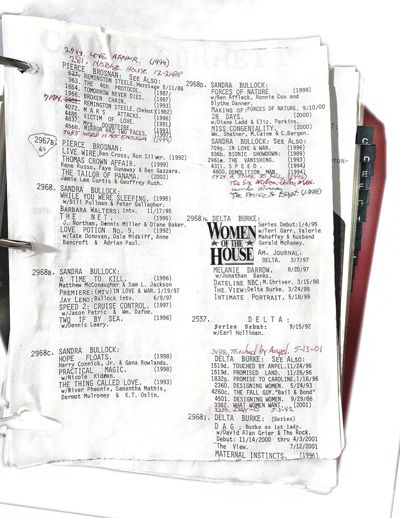 2944. LOVE AFFAIR. (1994)
281. MURDER HOUSE 12-2-88
PIERCE BROSNAN: SEE ALSO:
REMINGTON STEELE.Marriage 5/11/86
963. THE 4th PROTOCOL. (1987)
1654. TOMORROW NEVER DIES. (1997)
1956. BROKEN CHAIN. (1993)
2402. REMINGTON STEELE.(Debut)1982
4072. MARS ATTACKS! (1996)
4831. VICTIM OF LOVE. (1991)
(1996)
4668. MIRROR HAS TWO FACES. (1996)
2967B. PIERCE BROSNAN:
LIVE WIRE.Ben Cross, Ron Silver. (1992)
THOMAS CROWN AFFAIR. (1999)
Rene Russo, Faye Dunaway & Ben Gazzara.
THE TAILOR OF PANAMA. (2002)
Jamie Lee Curtis & Geoffrey Rush.
2968. SANDRA BULLOCK:
WHILE YOU WERE SLEEPING. (1995)
w/Bill Pullman & Peter Gallagher.
BARBARA WALTERS: Intv. 11/17/96
THE NET. (1995)
J. Northam, Dennis Miller & Diane Baker.
LOVE POTION No. 9. (1992)
w/Tate Donovan, Dale Midkiff, Anne
Bancroft & Adrian Paul.
2968a. SANDRA BULLOCK:
A TIME TO KILL. (1996)
Matthew McConaughey & Sam L. Jackson
PREMIERE:(MTV) IN LOVE & WAR.1/19/97
JAY LENO: Bullock intv. 6/9/97
SPEED 2: CRUISE CONTROL. (1997)
w/Jason Patric & Wm. Dafoe.
TWO IF BY SEA. (1996)
w/Dennis Leary.
2968c. SANDRA BULLOCK:
HOPE FLOATS. (1998)
Harry Connick, Jr. & Gena Rowlands.
PRACTICAL MAGIC. (1998)
w/Nicole Kidman.
THE THING CALLED LOVE. (1993)
w/River Pheonix, Samantha Mathis,
Dermot Mulroney & K.T. Oslin.
2968b. SANDRA BULLOCK:
FORCES OF NATURE (1999)
w/Ben Affleck, Ronnie Cox and
Blythe Danner.
MAKING OF:FORCES OF NATURE. 9/10/00
28 DAYS. (2000)
w/Diane Ladd & Eliz. Perkins.
MISS CONGENIALITY. (2000)
Wm. Shatner, M.Caine & C.Bergen.
SANDRA BULLOCK: SEE ALSO:
709g. IN LOVE & WAR. (1996)
936b. BIONIC SHOWDOWN. (1989)
2961e. THE VANISHING. (1993)
4311. SPEED. (1994)
4600. DEMOLITION MAN. (1994)
The Prince of Egypt. (1998)
2968h. DELTA BURKE:
WOMEN
OF THE
HOUSE
Series Debut:1/4/95
w/Teri Garr, Valerie
Mahaffey & husband
Gerald McRaney.
AM. JOURNAL.
DELTA. 3/7/97
MELANIE DARROW. 8/20/97
w/Jonathan Banks.
DATELINE NBC:M.Shriver. 3/15/98
THE VIEW:Delta Burke. 3/24/98
INTIMATE PORTRAIT. 5/18/99
2537. DELTA:
Series Debut: 9/15/92
w/Earl Holliman.
Touched by Angel. 5-13-01
DELTA BURKE: SEE ALSO:
1519d. TOUCHED BY ANGEL.11/24/96
1519d. PROMISED LAND. 11/26/96
1832g. PROMISE TO CAROLINE.1/16/96
2360. DESIGNING WOMEN. 5/24/93
4260c. THE FALL GUY."Bail & Bond"
4501. DESIGNING WOMEN. 9/29/86
3362. WHAT WOMEN WANT. (2001)
2968i. DELTA BURKE: (Series)
DAG: Burke as 1st lady.
w/David Alan Grier & The Rock.
Debut: 11/14/2000 thru 4/3/2001
The View. 7/12/2001
MATERNAL INSTINCTS. (1996)